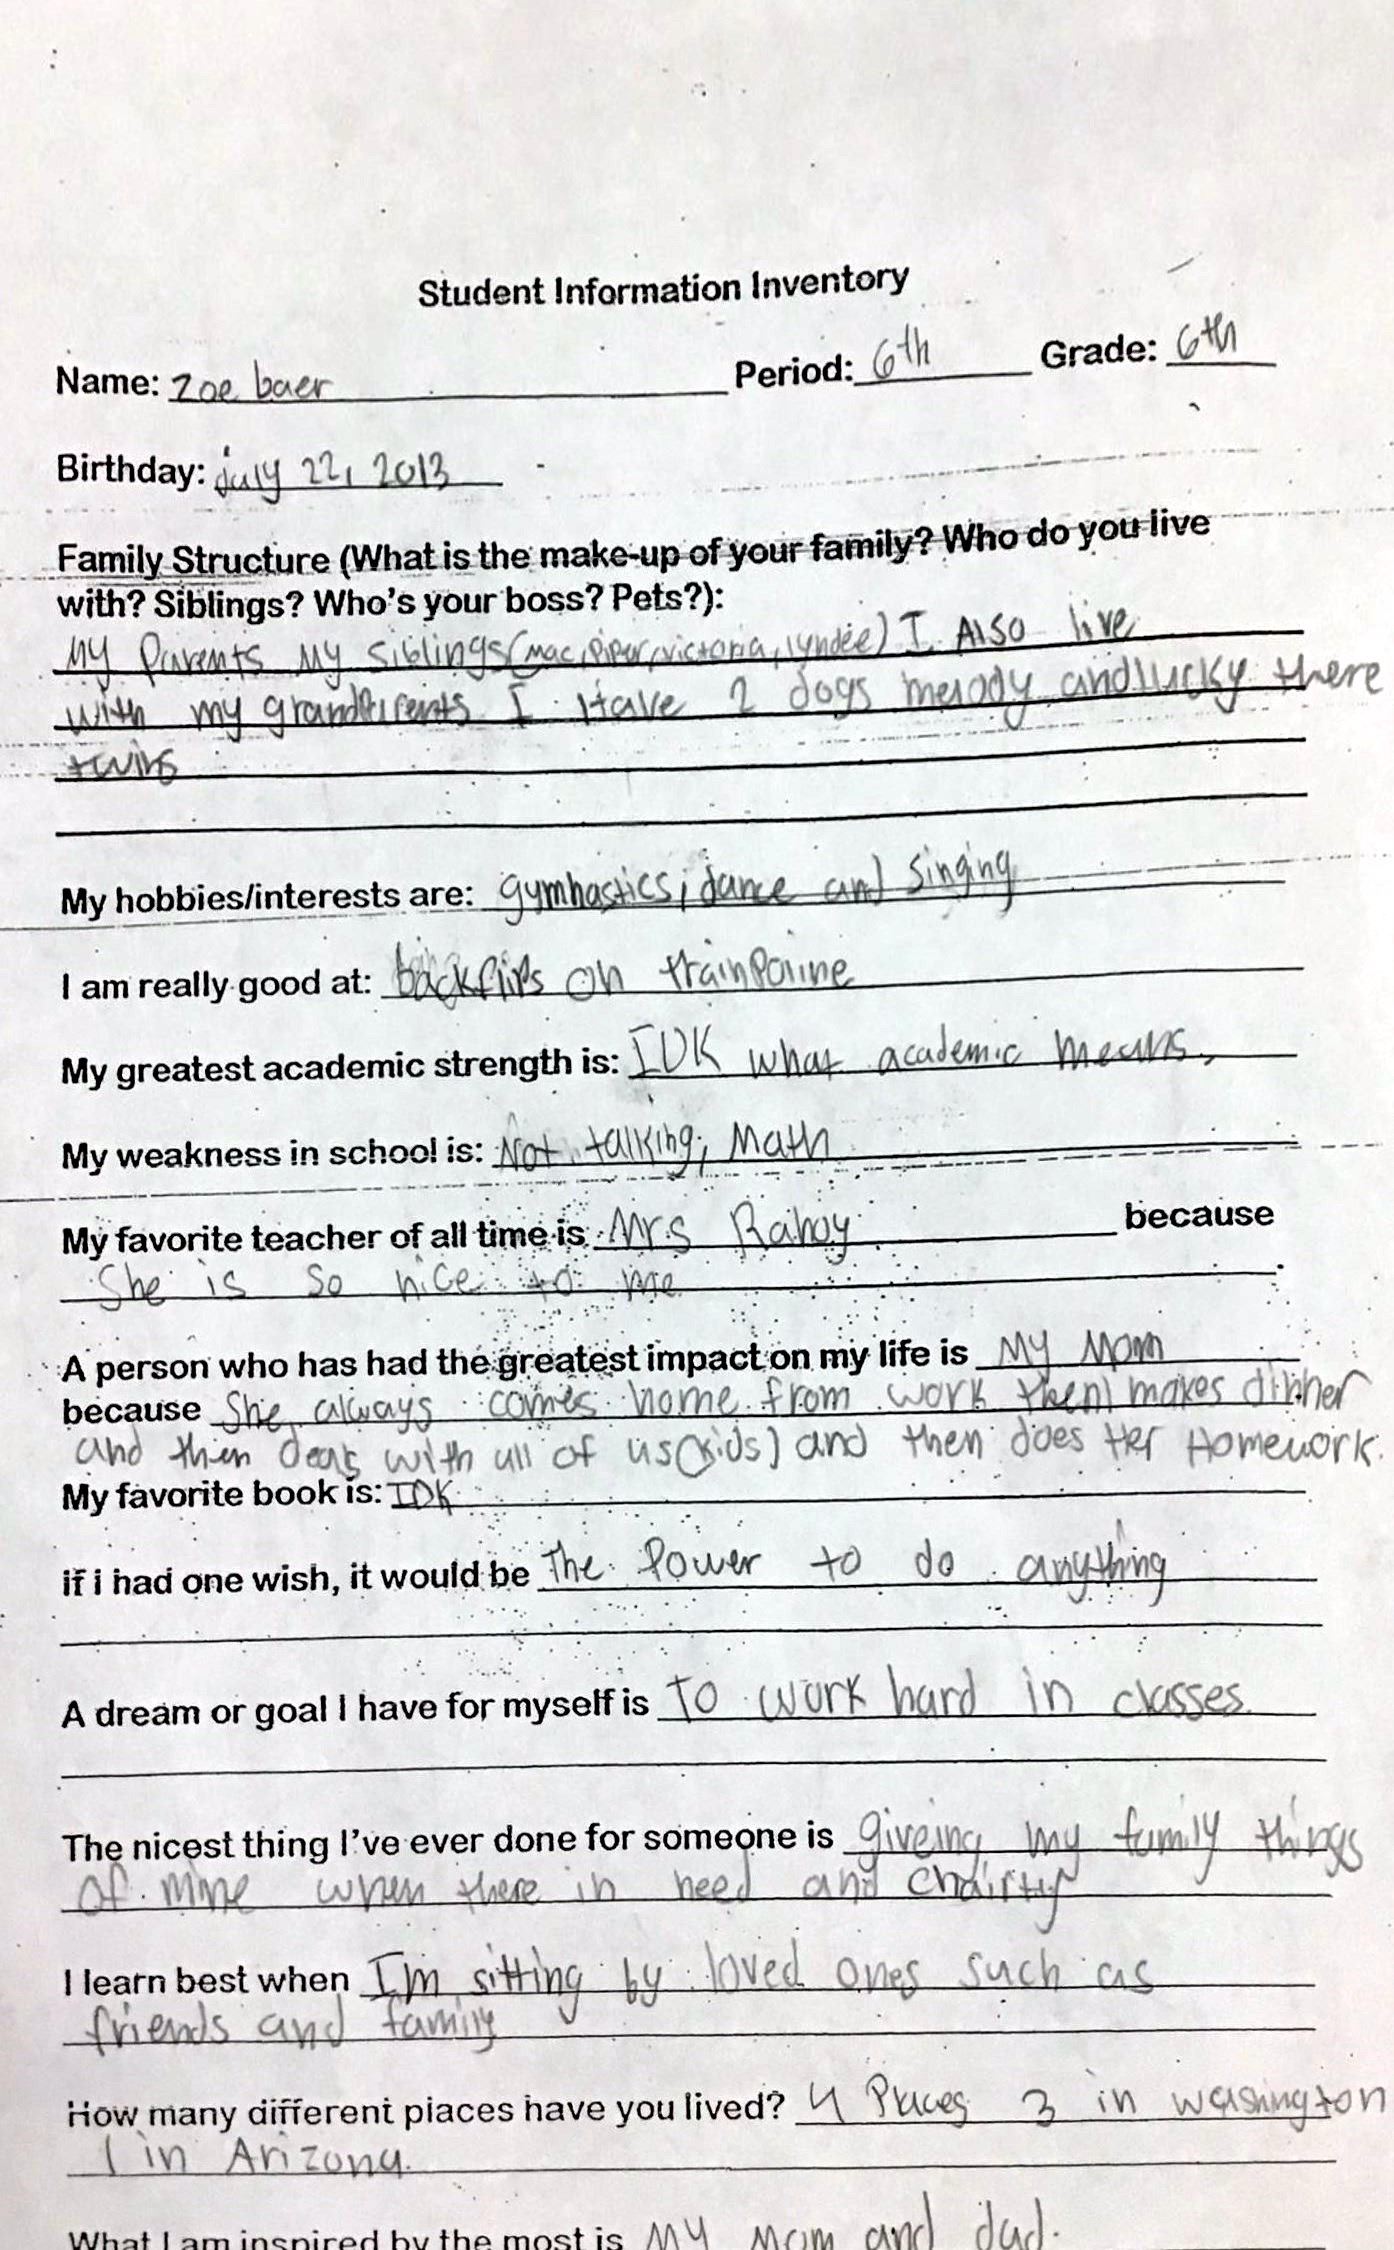 Student Information Inventory
Name: zoe baer Period: 6th Grade: 6th
Birthday: july 22, 2013
Family Structure (What is the make-up of your family? Who do you live
with? Siblings? Who's your boss? Pets?):
My Parents My siblings(mac, Piper, victoria, lyndee) I Also live
with my grandParents I Have 2 dogs melody and lucky there
twins
My hobbies/interests are: gymnastics, dance and singing
I am really good at: backflips on trainPoline
My greatest academic strength is: IDK what academic means,
My weakness in school is: Not talking, Math
My favorite teacher of all time is Mrs Rahoy because
She is so nice to me
A person who has had the greatest impact on my life is My Mom
because She always comes home from work then makes dinner
and then deals with all of us(kids) and then does Her Homework.
My favorite book is: IDK
if i had one wish, it would be The Power to do anything
A dream or goal I have for myself is To work hard in classes.
The nicest thing I've ever done for someone is giveing my family things
of mine when there in need and chairty
I learn best when I'm sitting by loved ones such as
friends and family
How many different places have you lived? 4 Places 3 in washington
1 in Arizona.
What I am inspired by the most is My Mom and dad.